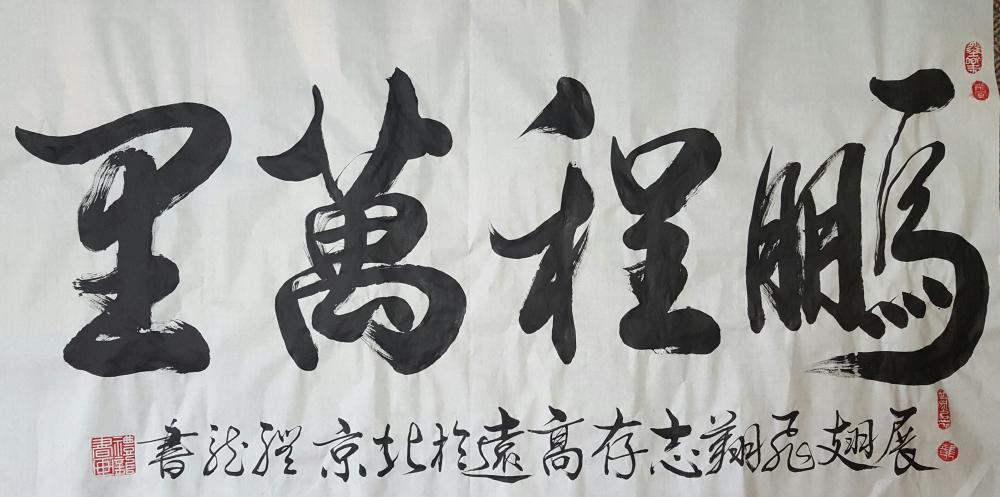 鵬程萬里
展翅飛翔志存高遠於北京禮龍書